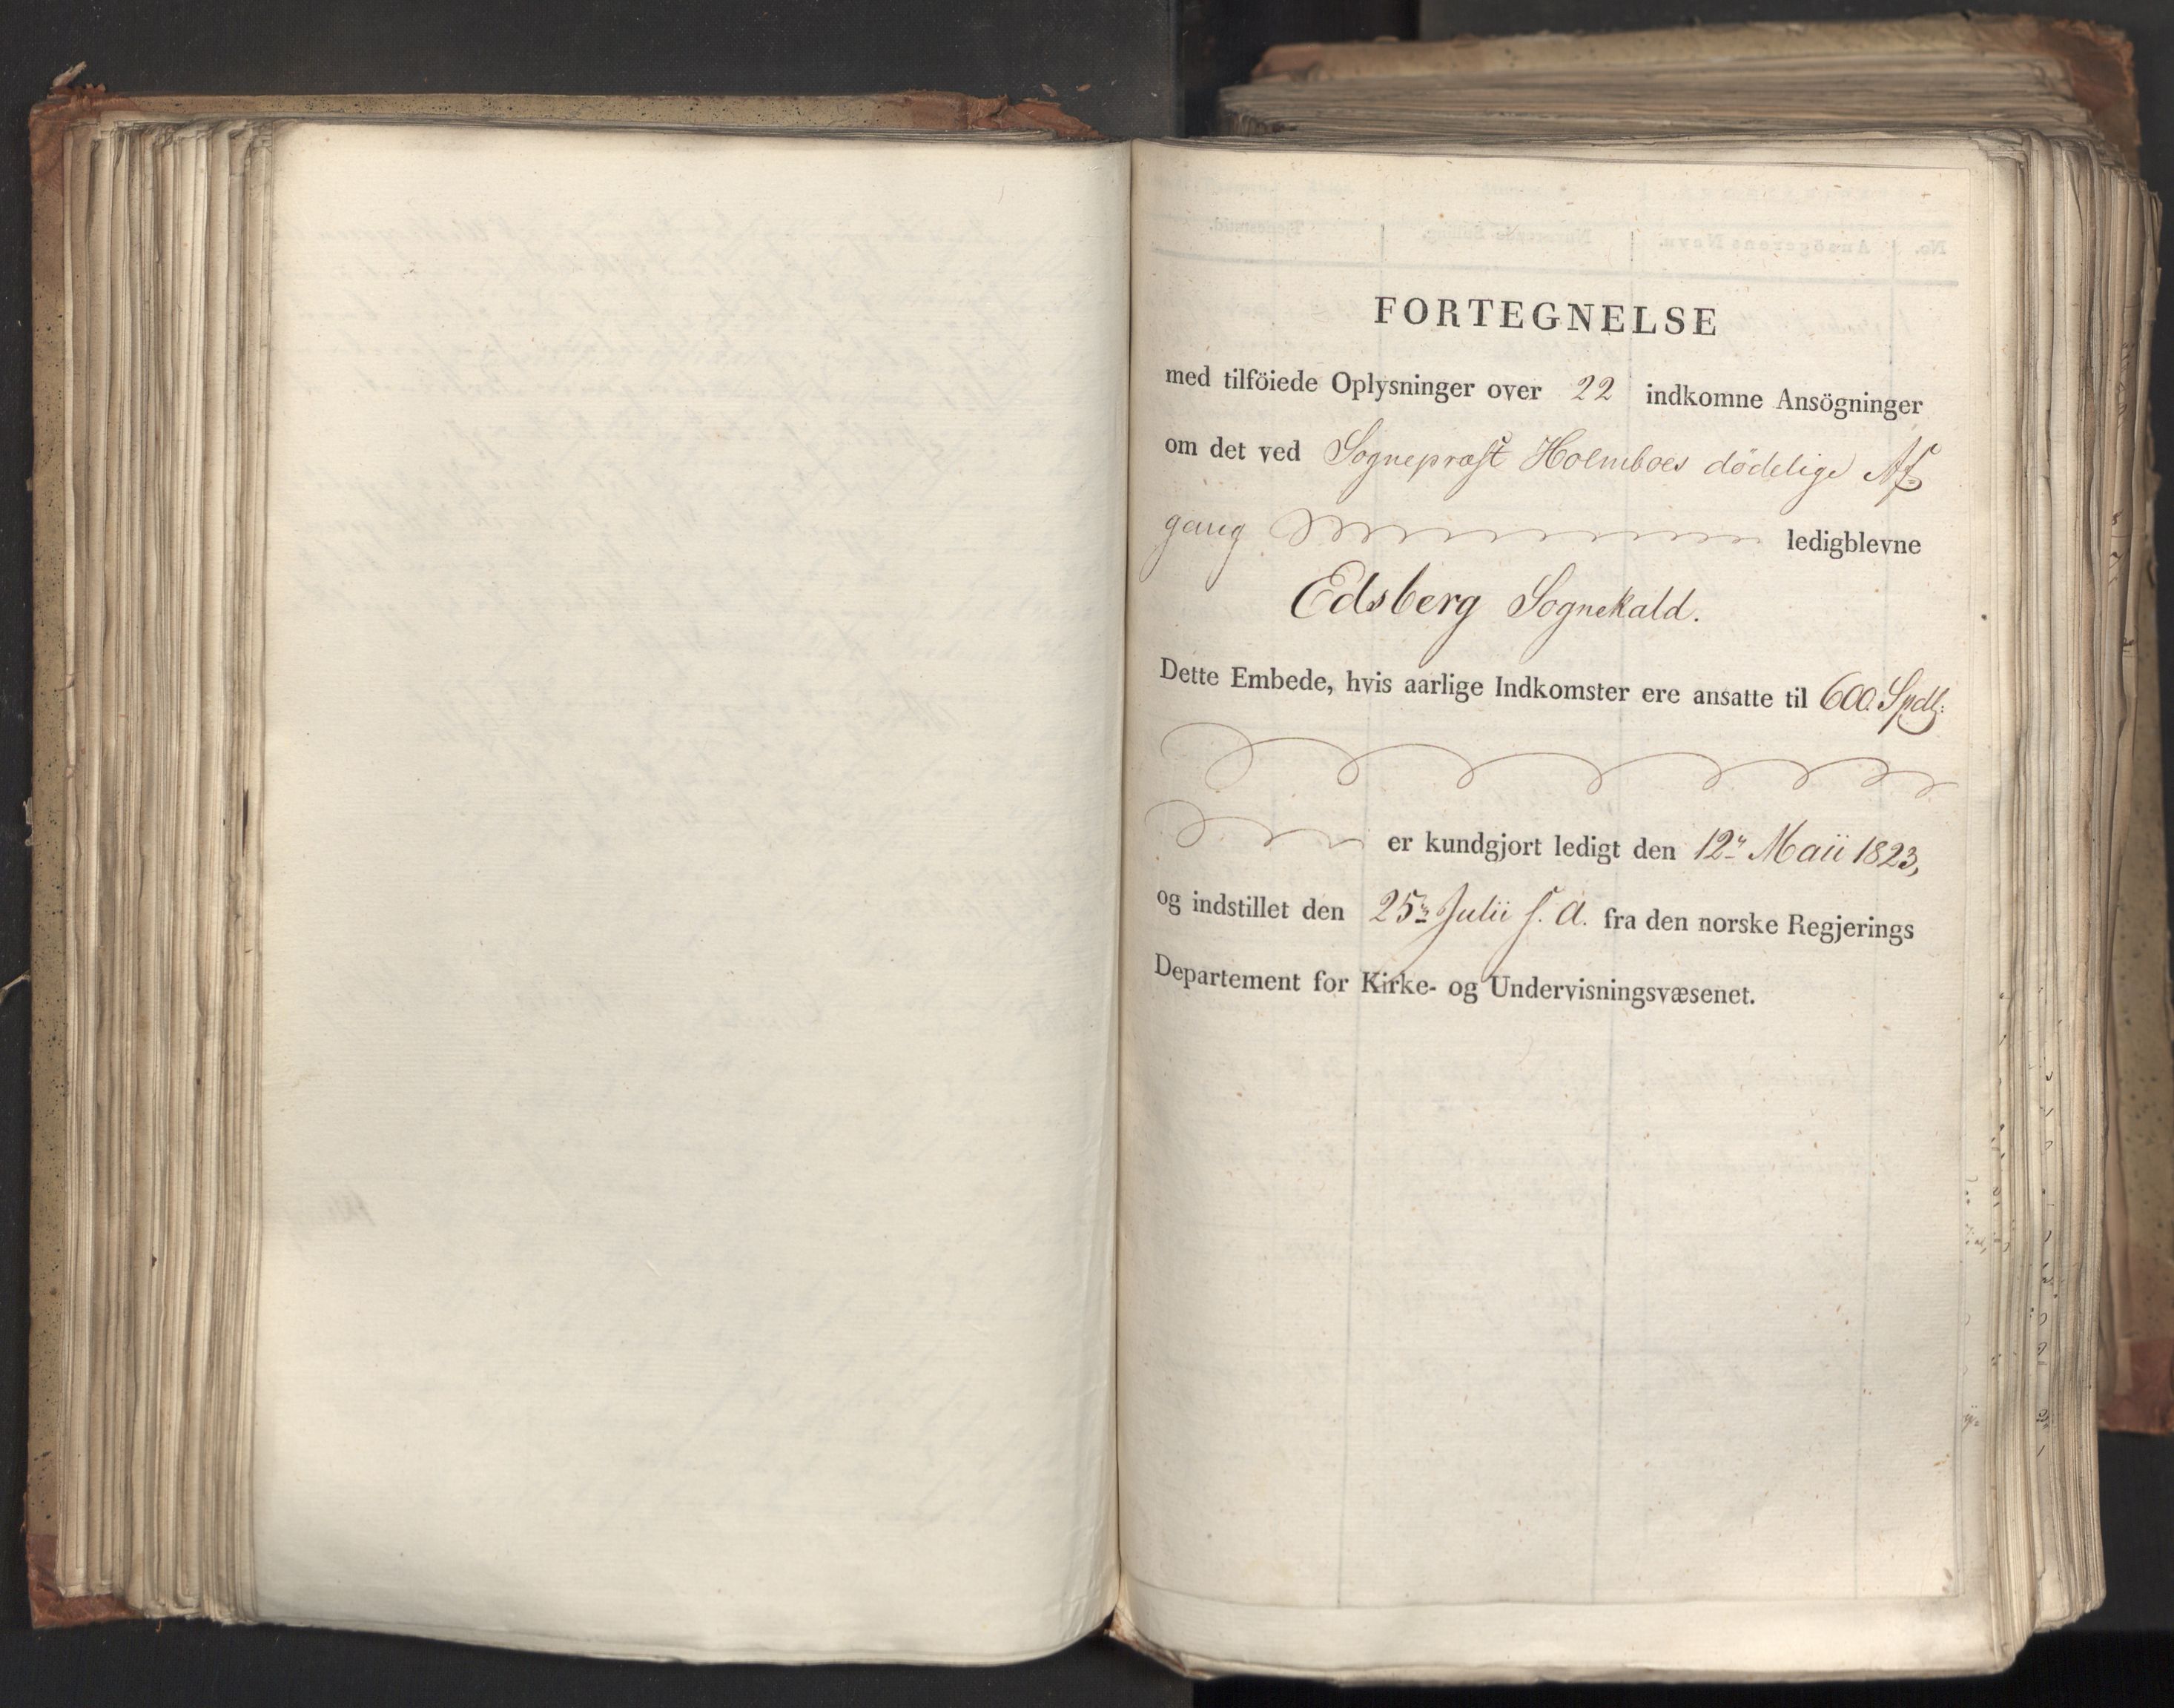 FORTEGNELSE
med tilföiede Oplysninger over 22 indkomne Ansögninger
om det ved Sognepræst Holmboes dödelige Af-
gang ledigblevne
Edsberg Sognekald.
Dette Embede, hvis aarlige Indkomster ere ansatte til 600 Spdlr:
er kundgjort ledigt den 12te Maii 1823,
og indstillet den 25de Julii s. A. fra den norske Regjerings
Departement for Kirke- og Undervisningsvæsenet.